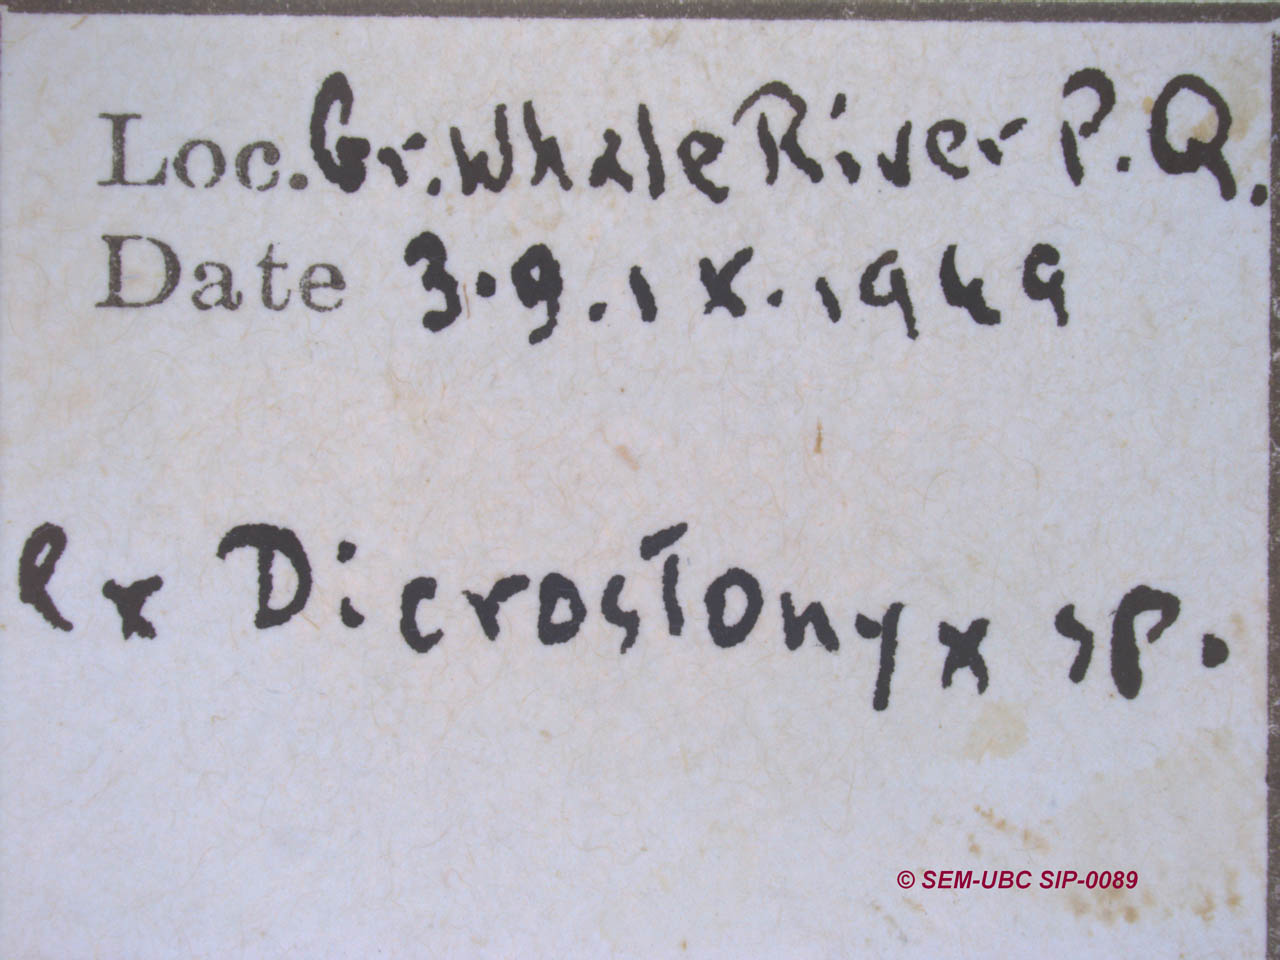 Loc. Gr. Whale River P.Q.
Date 3.9.IX.1949
ex Dicrostonyx sp.
© SEM-UBC SIP-0089